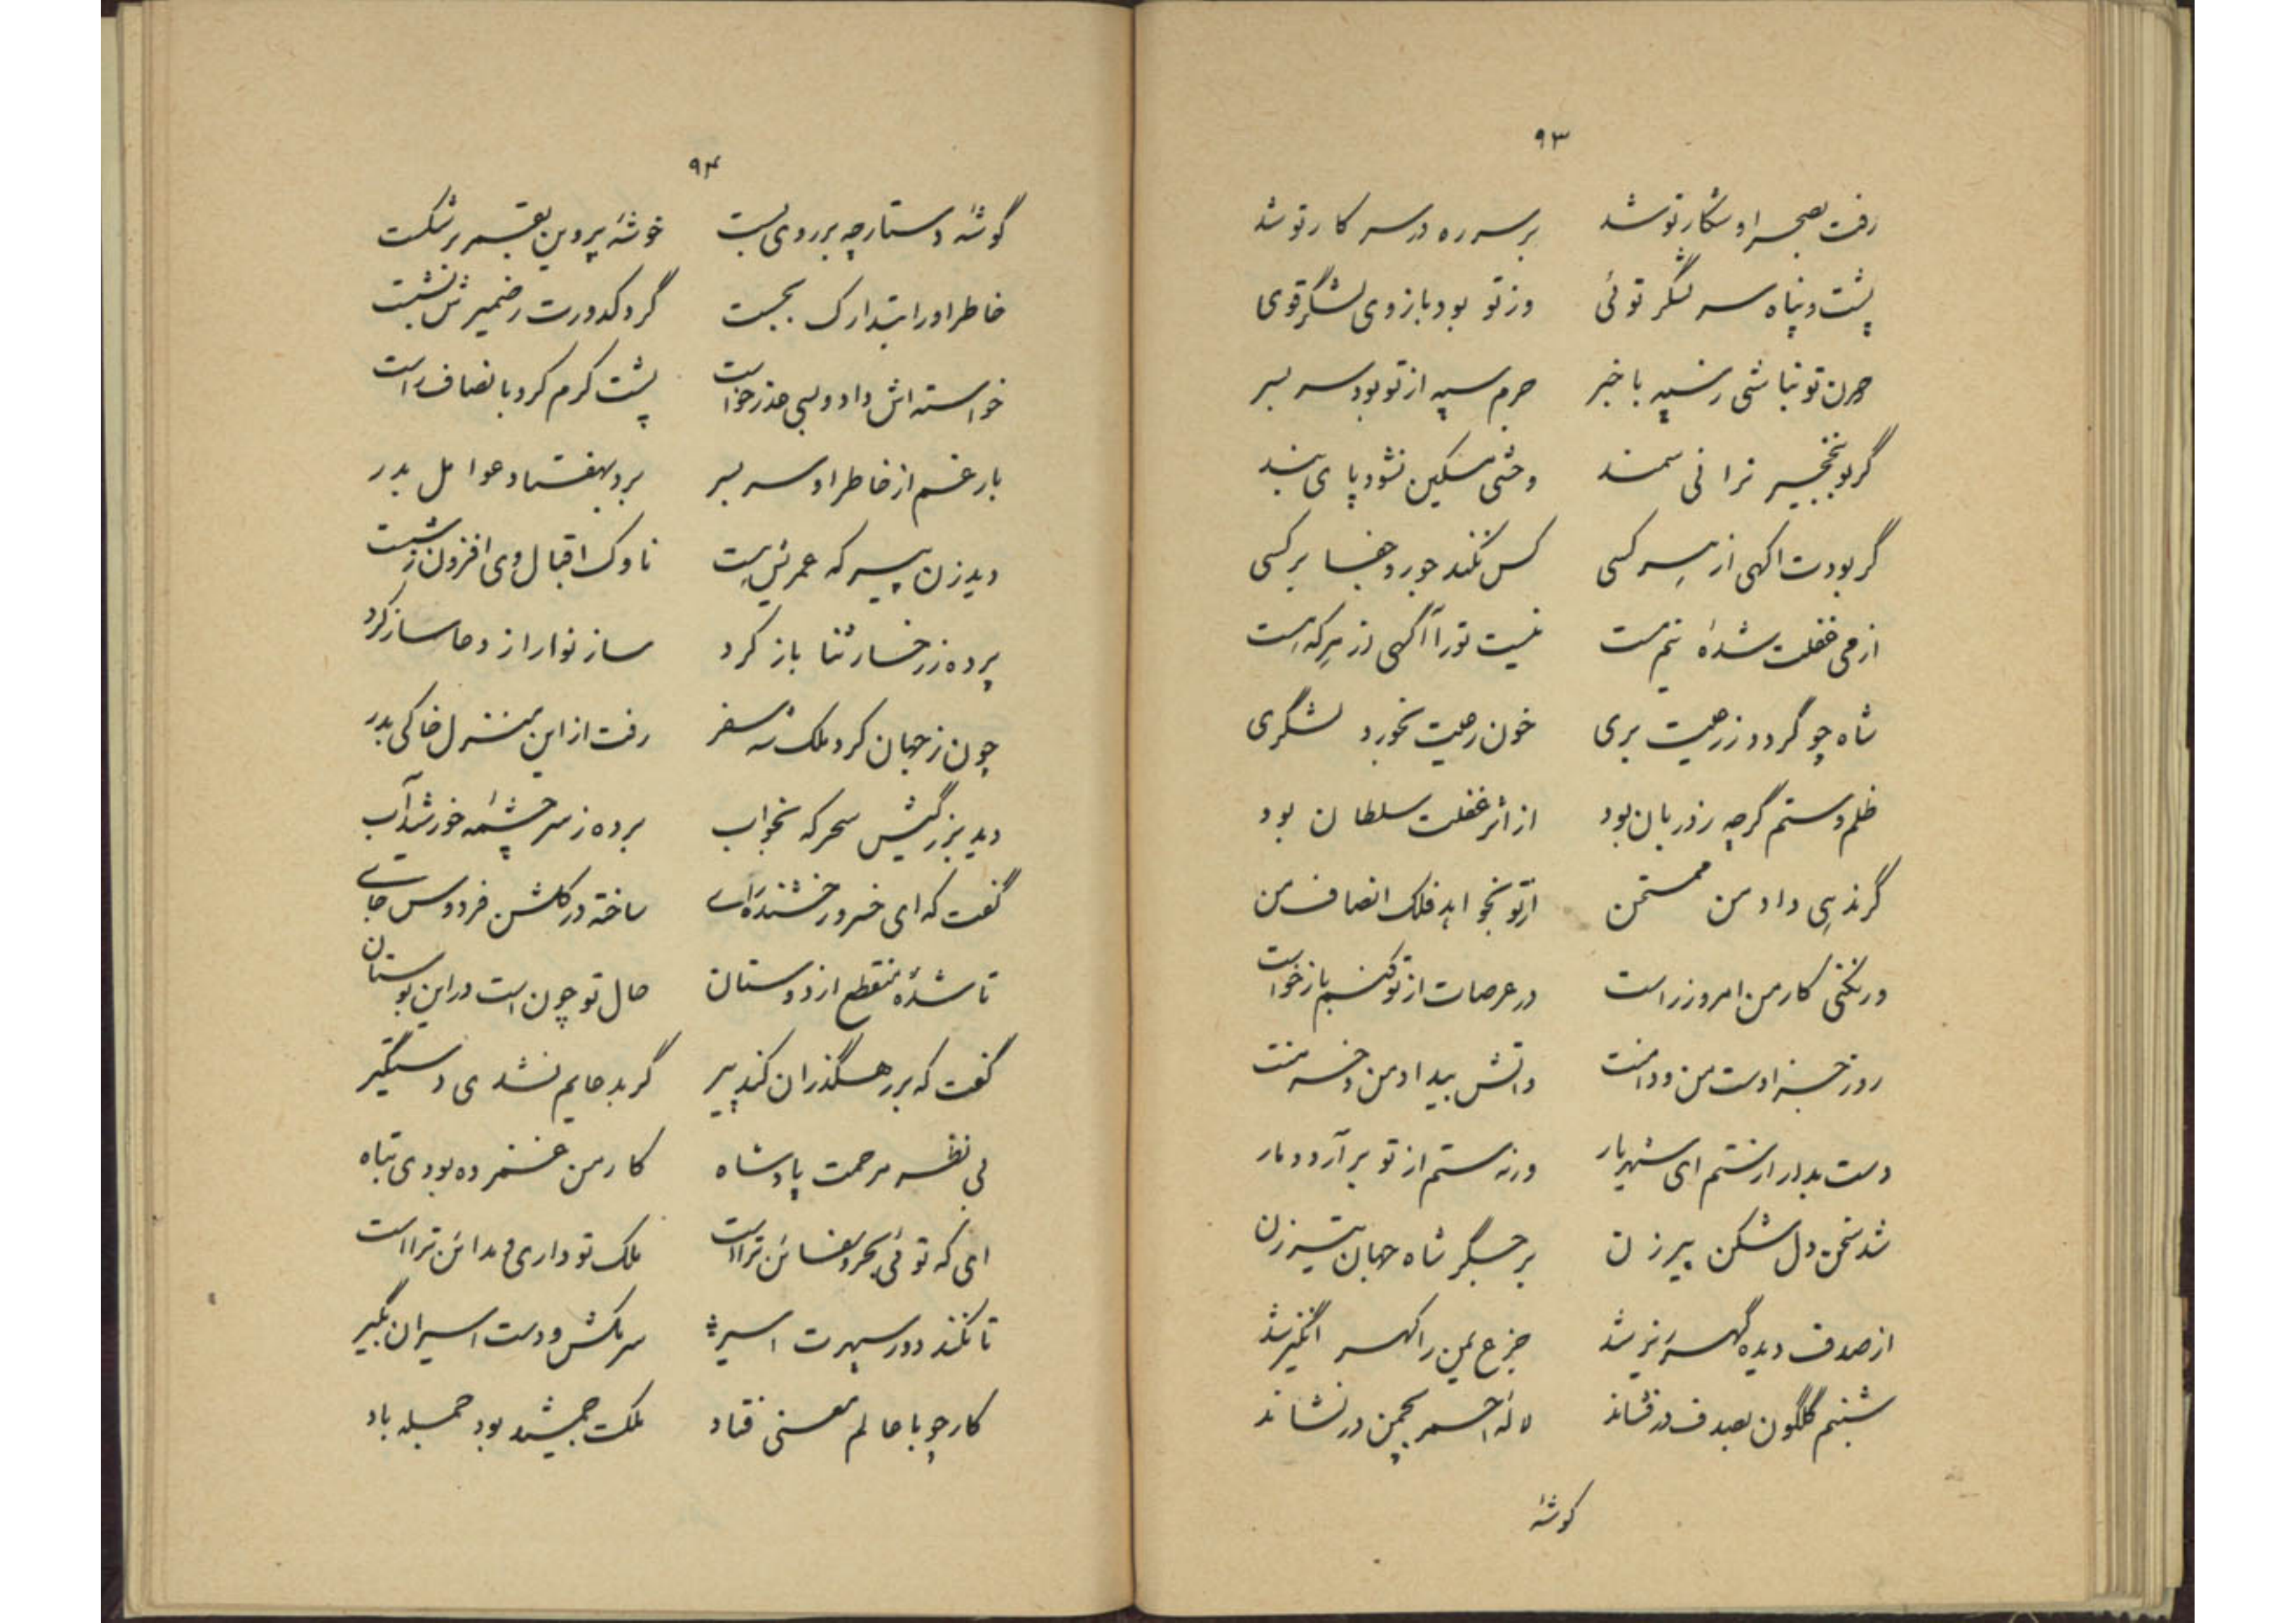 ۹۳
رفت بصحرا و شکار تو شد برسر ره در سر کار تو شد
پشت و پناه سر لشگر توئی وز تو بود بازوی لشگر قوی
چون تو نباشی ز سپه با خبر جرم سپه از تو بود سر بسر
گر بو بنخجیر نرانی سمند وحشی مسکین نشود پای بند
گر بودت اگهی از هر کسی کس نکند جور و جفا بر کسی
از می غفلت شدهٔ نیم مست نیست تو را آگهی از هر که هست
شاه چو گردد ز رعیت بری خون رعیت بخورد لشگری
ظلم و ستم گرچه ز دربان بود از اثر غفلت سلطان بود
گر ندهی داد من ممتحن از تو بخواهد فلک انصاف من
ور نکنی کار من امروز راست در عرصات از تو کنم باز خواست
روز جزا دست من و دامنت واتش بیداد من و خرمنت
دست بدار از ستم ای شهریار ورنه ستم از تو برآرد دمار
شد سخن دل شکن پیر زن بر جگر شاه جهان تیر زن
از صدف دیده گهر ریز شد جزع یمن را گهر انگیز شد
شبنم گلگون بصدف در فشاند لالهٔ احمر بچمن در نشاند
گوشهٔ
۹۴
گوشهٔ دستارچه بر روی بست خوشهٔ پروین بقمر برشکست
خاطر او را بتدارک بجست گرد کدورت ز ضمیرش بشست
خواسته اش داد و بسی عذر خواست پشت کرم کرد بانصاف راست
بار غم از خاطر او سر بسر برد بهفتاد عوامل بدر
دید زن پیر که عمریش هست ناوک اقبال وی افزون ز شست
پرده ز رخسار ثنا باز کرد ساز نوا را ز دعا ساز کرد
چون ز جهان کرد ملک شه سفر رفت از این منزل خاکی بدر
دید بزرگیش سحرگه بخواب برده ز سرچشمهٔ خورشید آب
گفت که ای خسرو رخشنده رای ساخته در گلشن فردوس جای
تا شدهٔ منقطع از دوستان حال تو چون است در این بوستان
گفت که بر رهگذر ان کند پیر گر بدعایم نشدی دستگیر
بی نظر مرحمت پادشاه کار من غمزده بودی تباه
ای که توئی بحر و سفائن تراست ملک تو داری و مدائن تراست
تا نکند دور سپهرت اسیر سر مکش و دست اسیران بگیر
کار چو با عالم معنی فتاد ملکت جمشید بود جمله باد